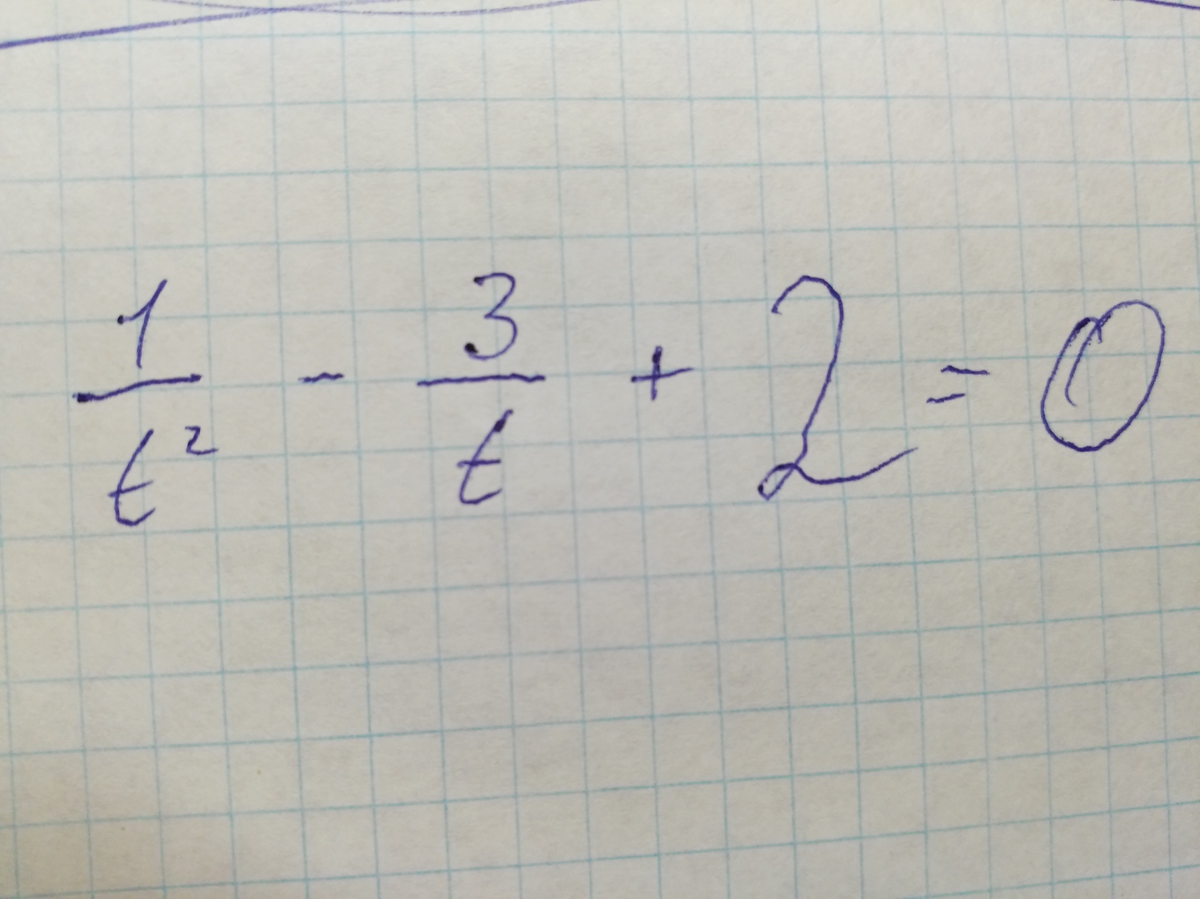 1/t² - 3/t + 2 = 0